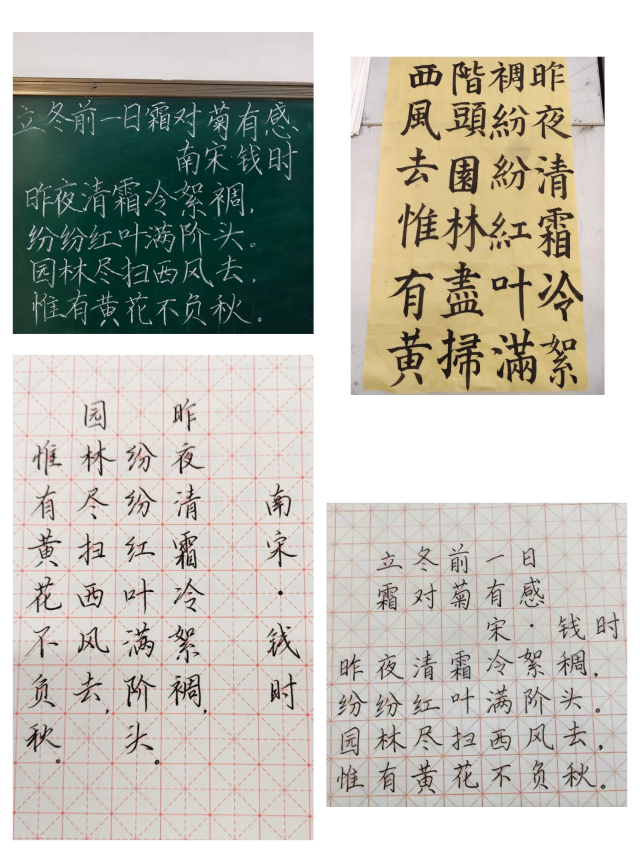 立冬前一日霜对菊有感
南宋·钱时
昨夜清霜冷絮裯,
纷纷红叶满阶头。
园林尽扫西风去,
惟有黄花不负秋。
昨夜清霜冷絮
裯紛紛紅叶滿
階頭園林盡掃
西風去惟有黄
南宋·钱时
昨夜清霜冷絮裯,
纷纷红叶满阶头。
园林尽扫西风去,
惟有黄花不负秋。
立冬前一日
霜对菊有感
宋·钱时
昨夜清霜冷絮稠,
纷纷红叶满阶头。
园林尽扫西风去,
惟有黄花不负秋。